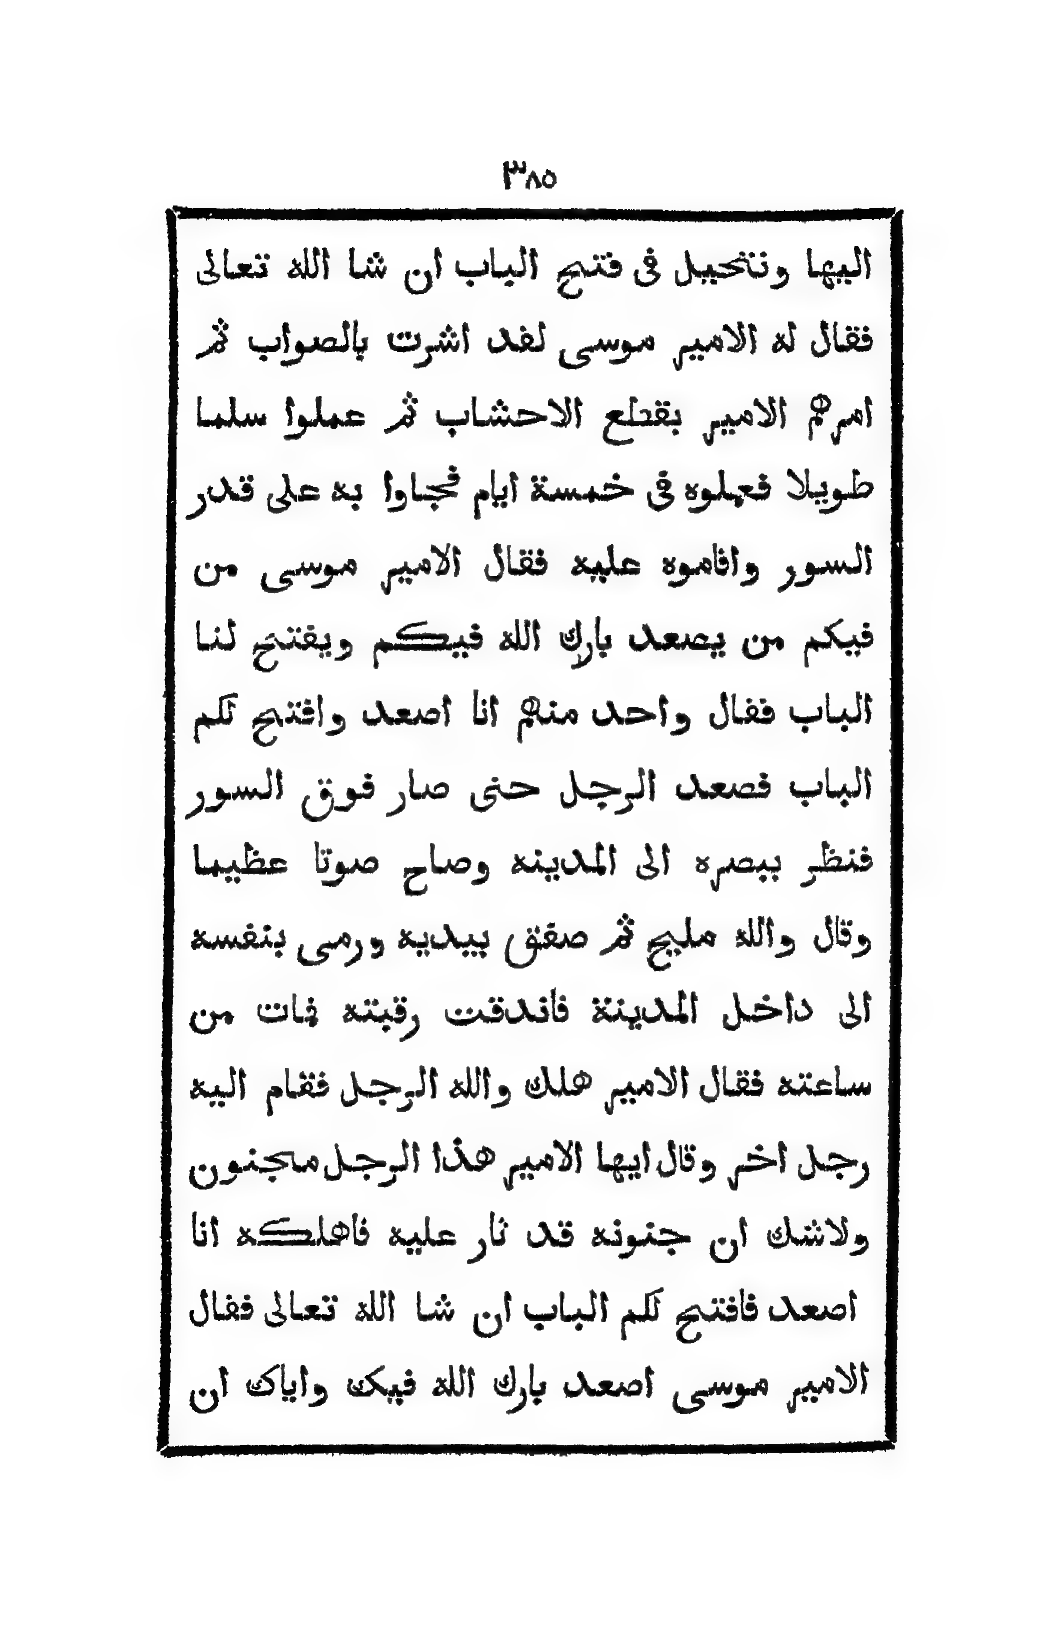 ٣٨٥
اليها ونتحيل فى فتح الباب ان شا الله تعالى
فقال له الامير موسى لقد اشرت بالصواب ثم
امرهم الامير بقطع الاحشاب ثم عملوا سلما
طويلا فعملوه فى خمسة ايام فجاوا به على قدر
السور واقاموه عليه فقال الامير موسى من
فيكم من يصعد بارك الله فيكم ويفتح لنا
الباب فقال واحد منهم انا اصعد وافتح لكم
الباب فصعد الرجل حتى صار فوق السور
فنظر ببصره الى المدينه وصاح صوتا عظيما
وقال والله مليح ثم صفق بيديه ورمى بنفسه
الى داخل المدينة فاندقت رقبته فمات من
ساعته فقال الامير هلك والله الرجل فقام اليه
رجل اخر وقال ايها الامير هذا الرجل مجنون
ولاشك ان جنونه قد ثار عليه فاهلكه انا
اصعد فافتح لكم الباب ان شا الله تعالى فقال
الامير موسى اصعد بارك الله فيك واياك ان